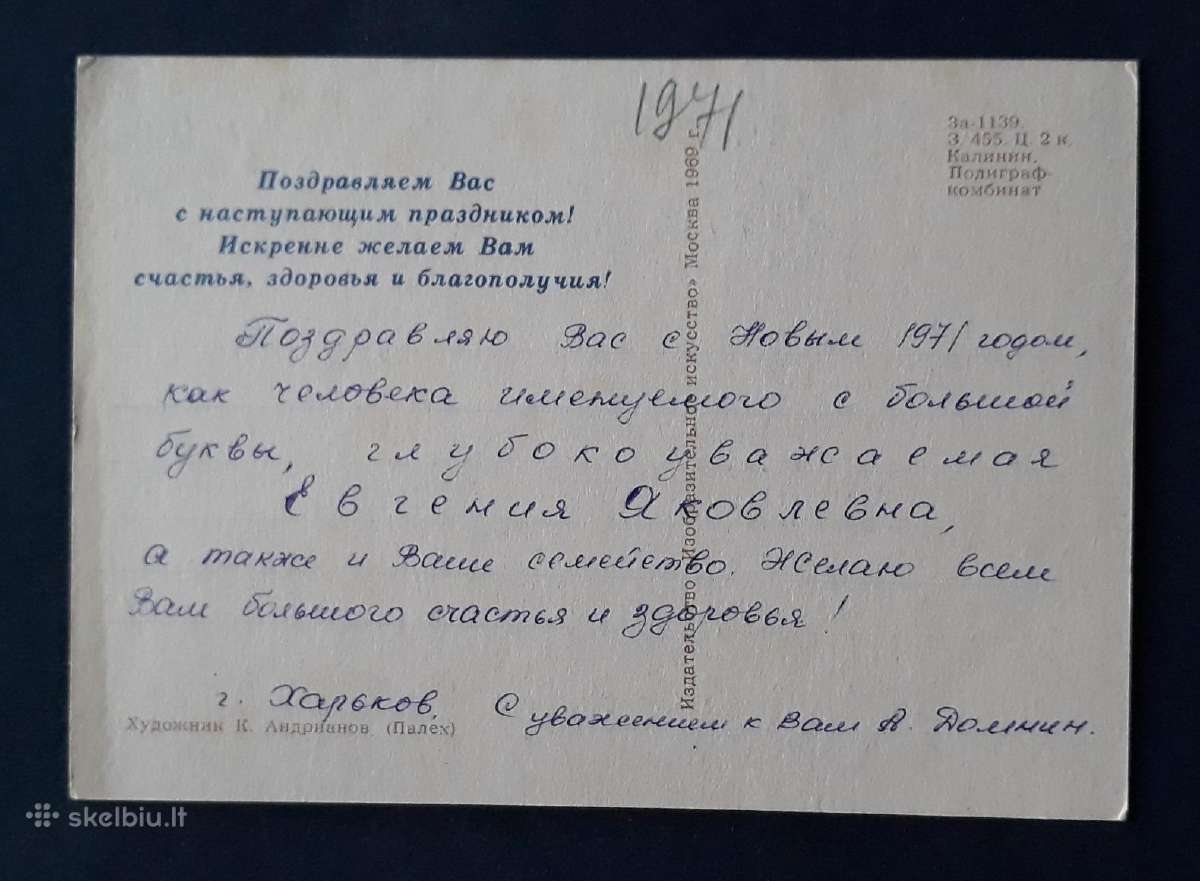 1971
За-1139.
З/455. Ц. 2 к.
Калинин.
Полиграф-
комбинат
Поздравляем Вас
с наступающим праздником!
Искренне желаем Вам
счастья, здоровья и благополучия!
Издательство «Изобразительное искусство» Москва 1969 г.
Поздравляю Вас с Новым 1971 годом,
как человека именуемого с большой
буквы, глубокоуважаемая
Евгения Яковлевна,
а также и Ваше семейство. Желаю всем
Вам большого счастья и здоровья!
г. Харьков. С уважением к Вам А. Домнин.
Художник К. Андрианов (Палех)
skelbiu.lt